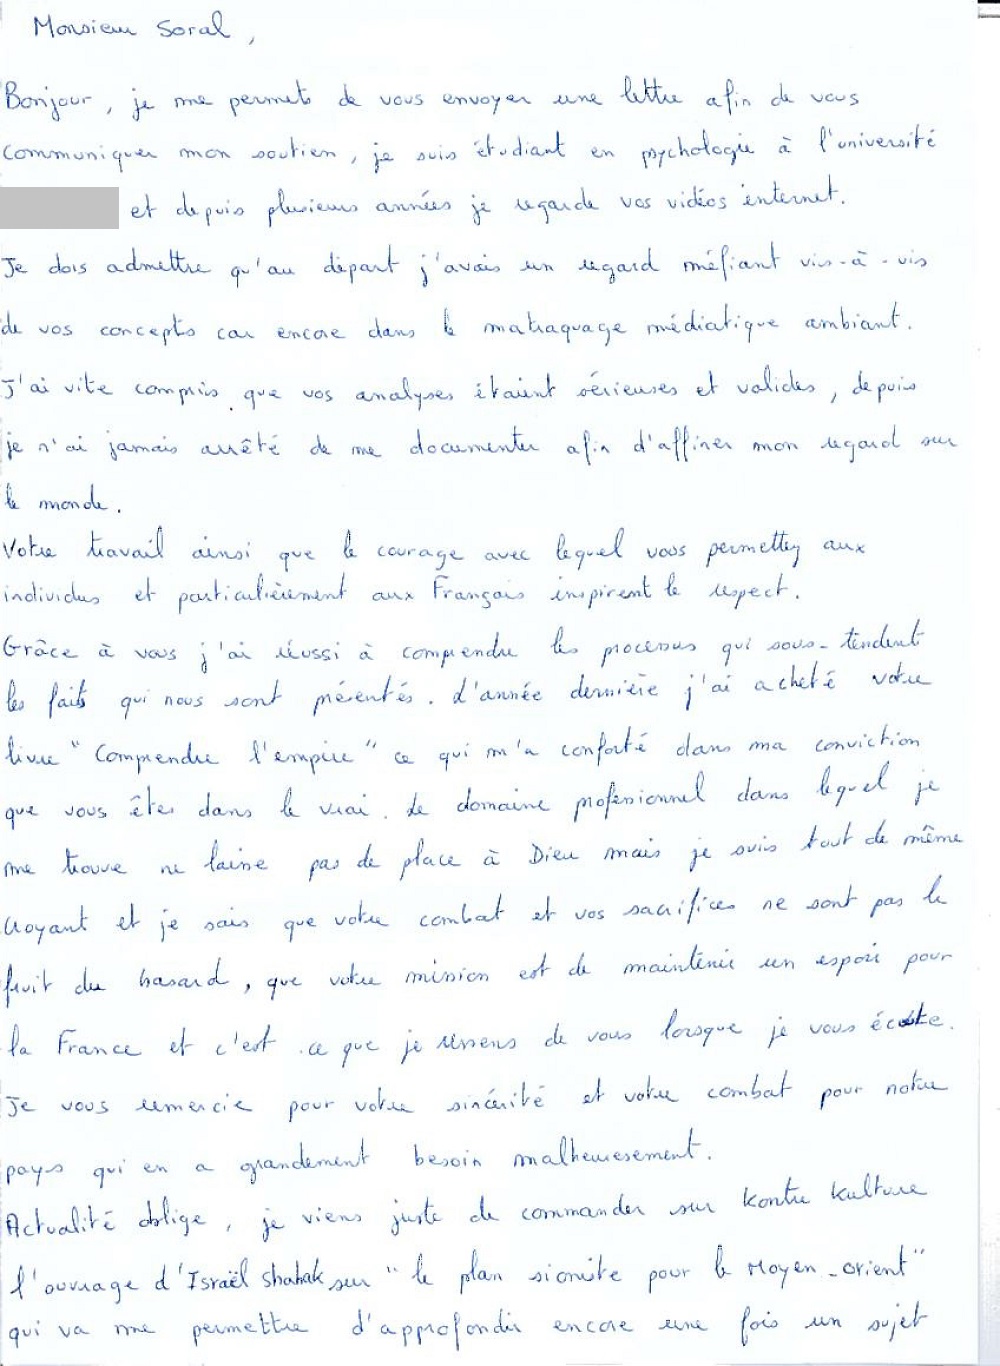 Monsieur Soral,
Bonjour, je me permets de vous envoyer une lettre afin de vous
communiquer mon soutien, je suis étudiant en psychologie à l'université
et depuis plusieurs années je regarde vos vidéos internet.
Je dois admettre qu'au départ j'avais un regard méfiant vis-à-vis
de vos concepts car encore dans le matraquage médiatique ambiant.
J'ai vite compris que vos analyses étaient sérieuses et valides, depuis
je n'ai jamais arrêté de me documenter afin d'affiner mon regard sur
le monde.
Votre travail ainsi que le courage avec lequel vous permettez aux
individus et particulièrement aux Français inspirent le respect.
Grâce à vous j'ai réussi à comprendre les processus qui sous-tendent
les faits qui nous sont présentés. L'année dernière j'ai acheté votre
livre "Comprendre l'empire" ce qui m'a conforté dans ma conviction
que vous êtes dans le vrai. Le domaine professionnel dans lequel je
me trouve ne laisse pas de place à Dieu mais je suis tout de même
croyant et je sais que votre combat et vos sacrifices ne sont pas le
fruit du hasard, que votre mission est de maintenir un espoir pour
la France et c'est ce que je ressens de vous lorsque je vous écoute.
Je vous remercie pour votre sincérité et votre combat pour notre
pays qui en a grandement besoin malheureusement.
Actualité oblige, je viens juste de commander sur Kontre Kulture
l'ouvrage d'Israël Shahak sur "le plan sioniste pour le Moyen-orient"
qui va me permettre d'approfondir encore une fois un sujet